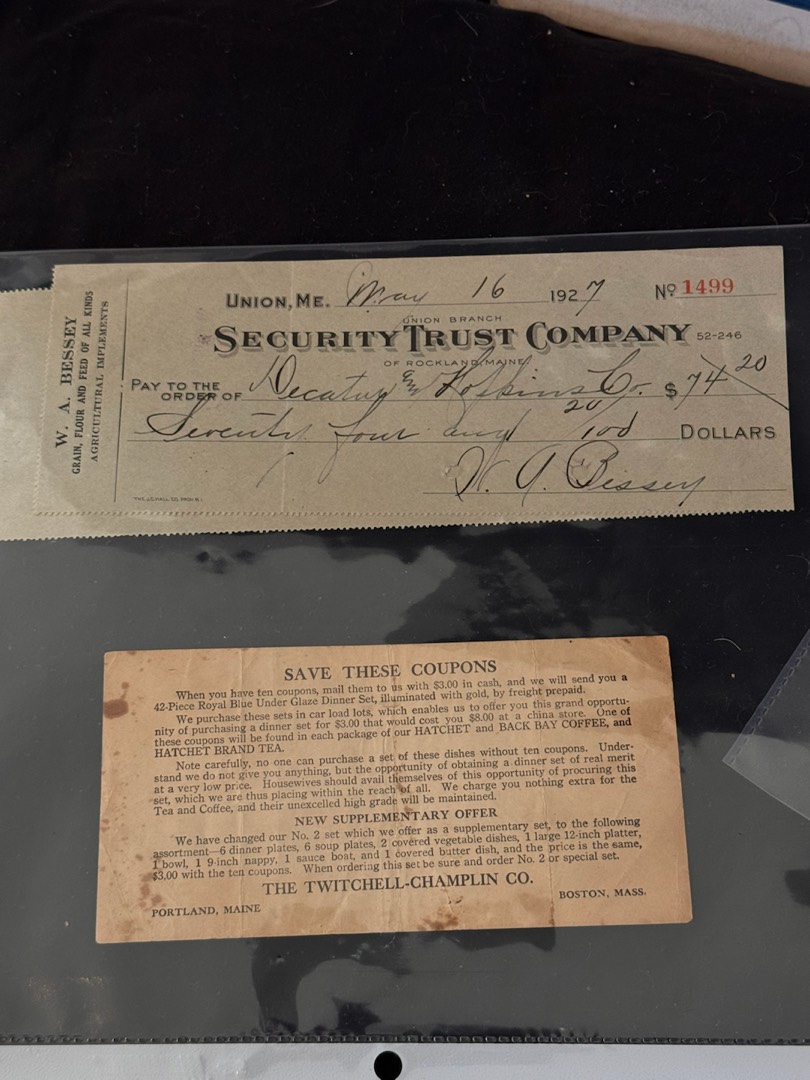 W. A. BESSEY
GRAIN, FLOUR AND FEED OF ALL KINDS
AGRICULTURAL IMPLEMENTS
UNION, ME. May 16 1927 No 1499
UNION BRANCH
SECURITY TRUST COMPANY 52-246
OF ROCKLAND, MAINE
PAY TO THE
ORDER OF Decatur & Hopkins Co. $ 74 20
Seventy four and 20/100 DOLLARS
W. A. Bessey
SAVE THESE COUPONS
When you have ten coupons, mail them to us with $3.00 in cash, and we will send you a
42-Piece Royal Blue Under Glaze Dinner Set, illuminated with gold, by freight prepaid.
We purchase these sets in car load lots, which enables us to offer you this grand opportu-
nity of purchasing a dinner set for $3.00 that would cost you $8.00 at a china store. One of
these coupons will be found in each package of our HATCHET and BACK BAY COFFEE, and
HATCHET BRAND TEA.
Note carefully, no one can purchase a set of these dishes without ten coupons. Under-
stand we do not give you anything, but the opportunity of obtaining a dinner set of real merit
at a very low price. Housewives should avail themselves of this opportunity of procuring this
set, which we are thus placing within the reach of all. We charge you nothing extra for the
Tea and Coffee, and their unexcelled high grade will be maintained.
NEW SUPPLEMENTARY OFFER
We have changed our No. 2 set which we offer as a supplementary set, to the following
assortment—6 dinner plates, 6 soup plates, 2 covered vegetable dishes, 1 large 12-inch platter,
1 bowl, 1 9-inch nappy, 1 sauce boat, and 1 covered butter dish, and the price is the same,
$3.00 with the ten coupons. When ordering this set be sure and order No. 2 or special set.
THE TWITCHELL-CHAMPLIN CO.
PORTLAND, MAINE BOSTON, MASS.